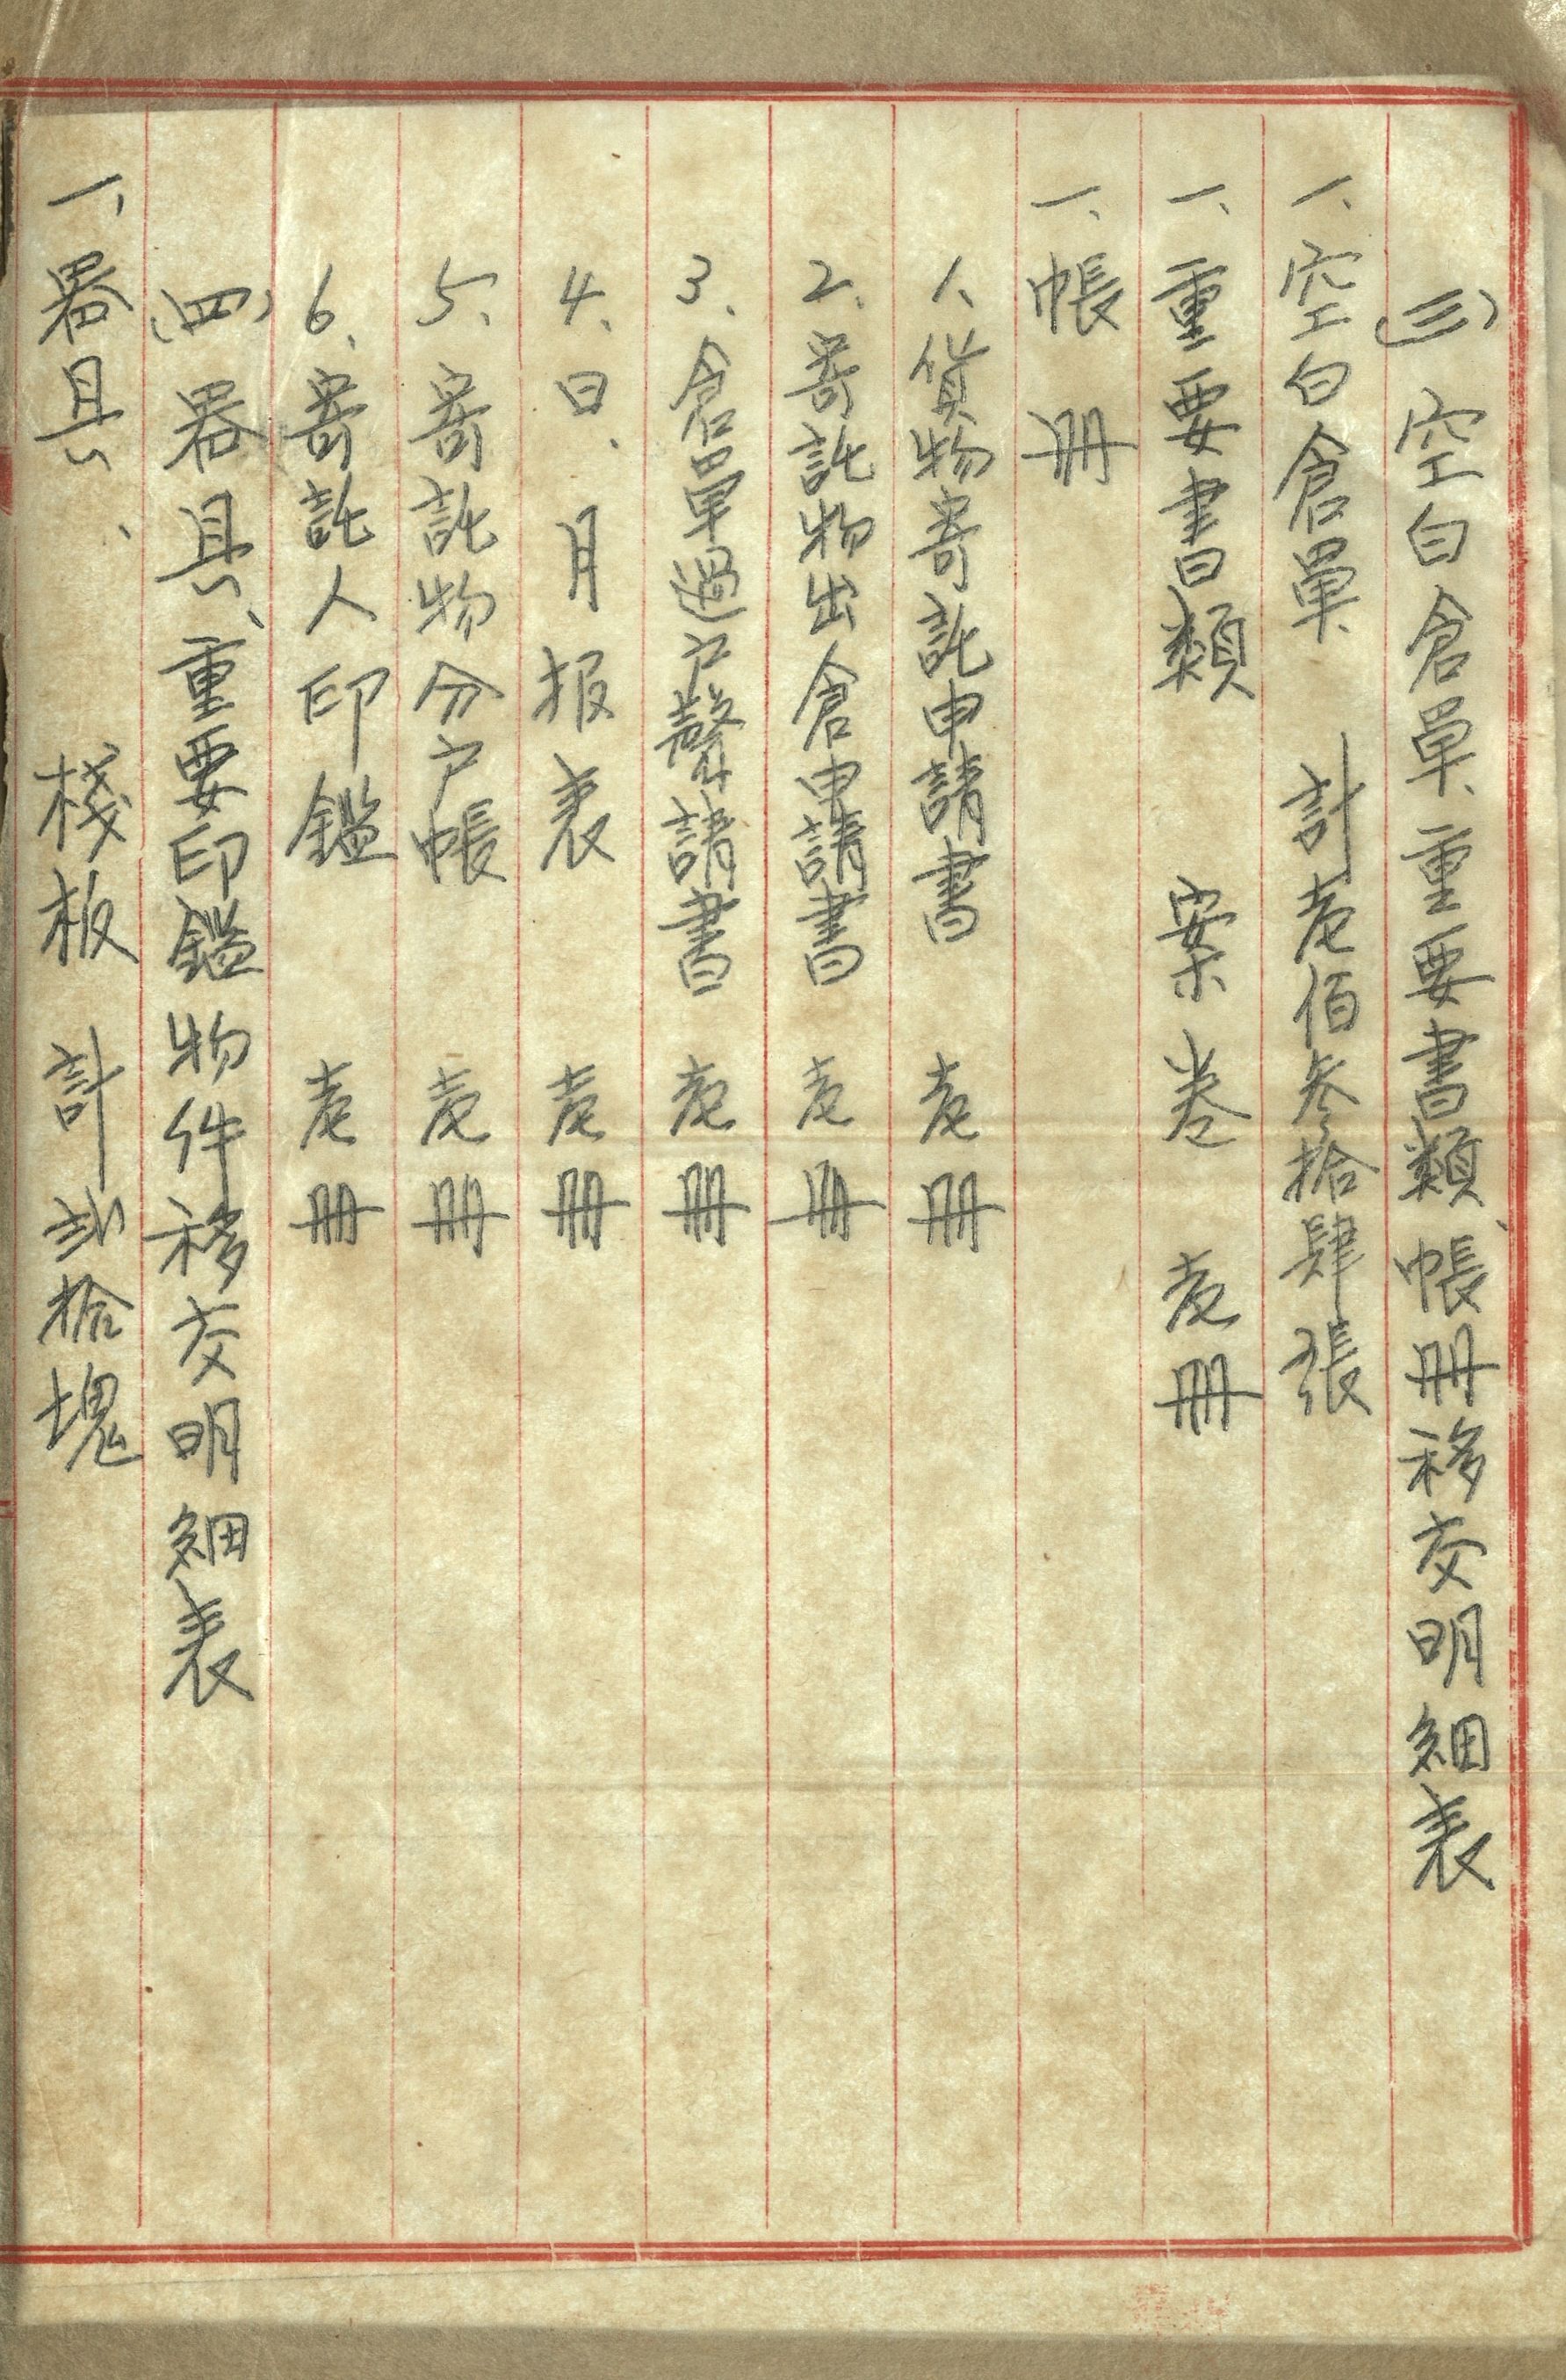 (三)空白倉單、重要書類、帳冊移交明細表
一、空白倉單、計壱佰叁拾肆張
一、重要書類 案卷 壱冊
一、帳冊
1、貨物寄託申請書 壱冊
2、寄託物出倉申請書 壱冊
3、倉單過户聲請書 壱冊
4、日、月报表 壱冊
5、寄託物分户帳 壱冊
6、寄託人印鑑 壱冊
(四)器具、重要印鑑物件移交明細表
一、器具、 棧板 計 弍拾塊